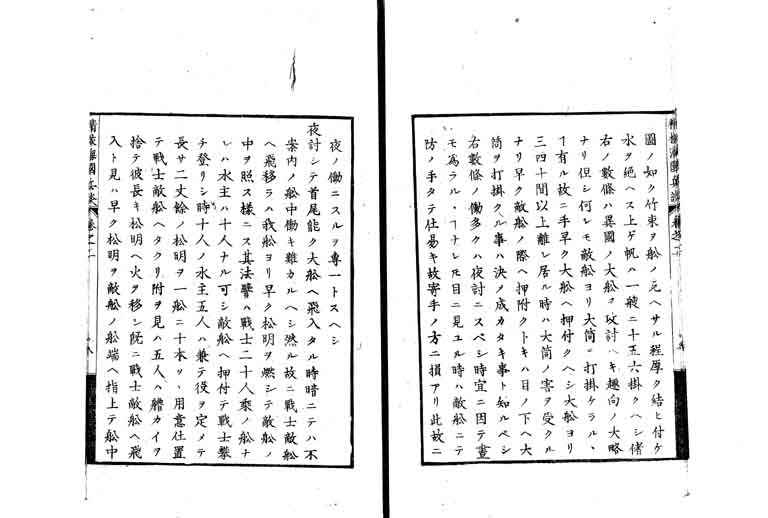 圖ノ如ク竹束ヲ舩ノ危ヘサル程厚ク結ヒ付ケ
水ヲ絶ヘス上ゲ帆ハ一艘ニ十五六掛クヘシ偖
右ノ數條ハ異國ノ大舩ヲ攻討ヘキ趣向ノ大略
ナリ但シ何レモ敵舩ヨリ大筒ヲ打掛ケラル、
ヿ有ル故ニ手早ク大舩ヘ押付クヘシ大舩ヨリ
三四十間以上離レ居ル時ハ大筒ノ害ヲ受クル
ナリ早ク敵舩ノ際ヘ押附クトキハ目ノ下ヘ大
筒ヲ打掛クル事ハ決ノ成カタキ事ト知ルベシ
右數條ノ働多クハ夜討ニスベシ時宜ニ因テ晝
モ為ラル、ヿナレ𪜈目ニ見ユル時ハ敵舩ニテ
防ノ手タテ仕易キ故寄手ノ方ニ損アリ此故ニ
夜ノ働ニスルヲ專一トスヘシ
夜討シテ首尾能ク大舩ヘ飛入タル時暗ニテハ不
案内ノ舩中働キ難カルヘシ然ル故ニ戰士敵舩
ヘ飛移ラハ我舩ヨリ早ク松明ヲ燃シテ敵舩ノ
中ヲ照ス樣ニス其法譬ハ戰士二十人乘ノ舩ナ
レハ水主ハ十人ナル可シ敵舩ヘ押付テ戰士攀
チ登リシ時十人ノ水主五人ハ兼テ役ヲ定メテ
長サ二丈餘ノ松明ヲ一舩ニ十本ツヽ用意仕置
テ戰士敵舩ヘタクリ附ヲ見ハ五人ハ艪カイヲ
捨テ彼長キ松明ヘ火ヲ移シ既ニ戰士敵舩ヘ飛
入ト見ハ早ク松明ヲ敵舩ノ舩端ヘ指上テ舩中
精校海國兵談 卷之一